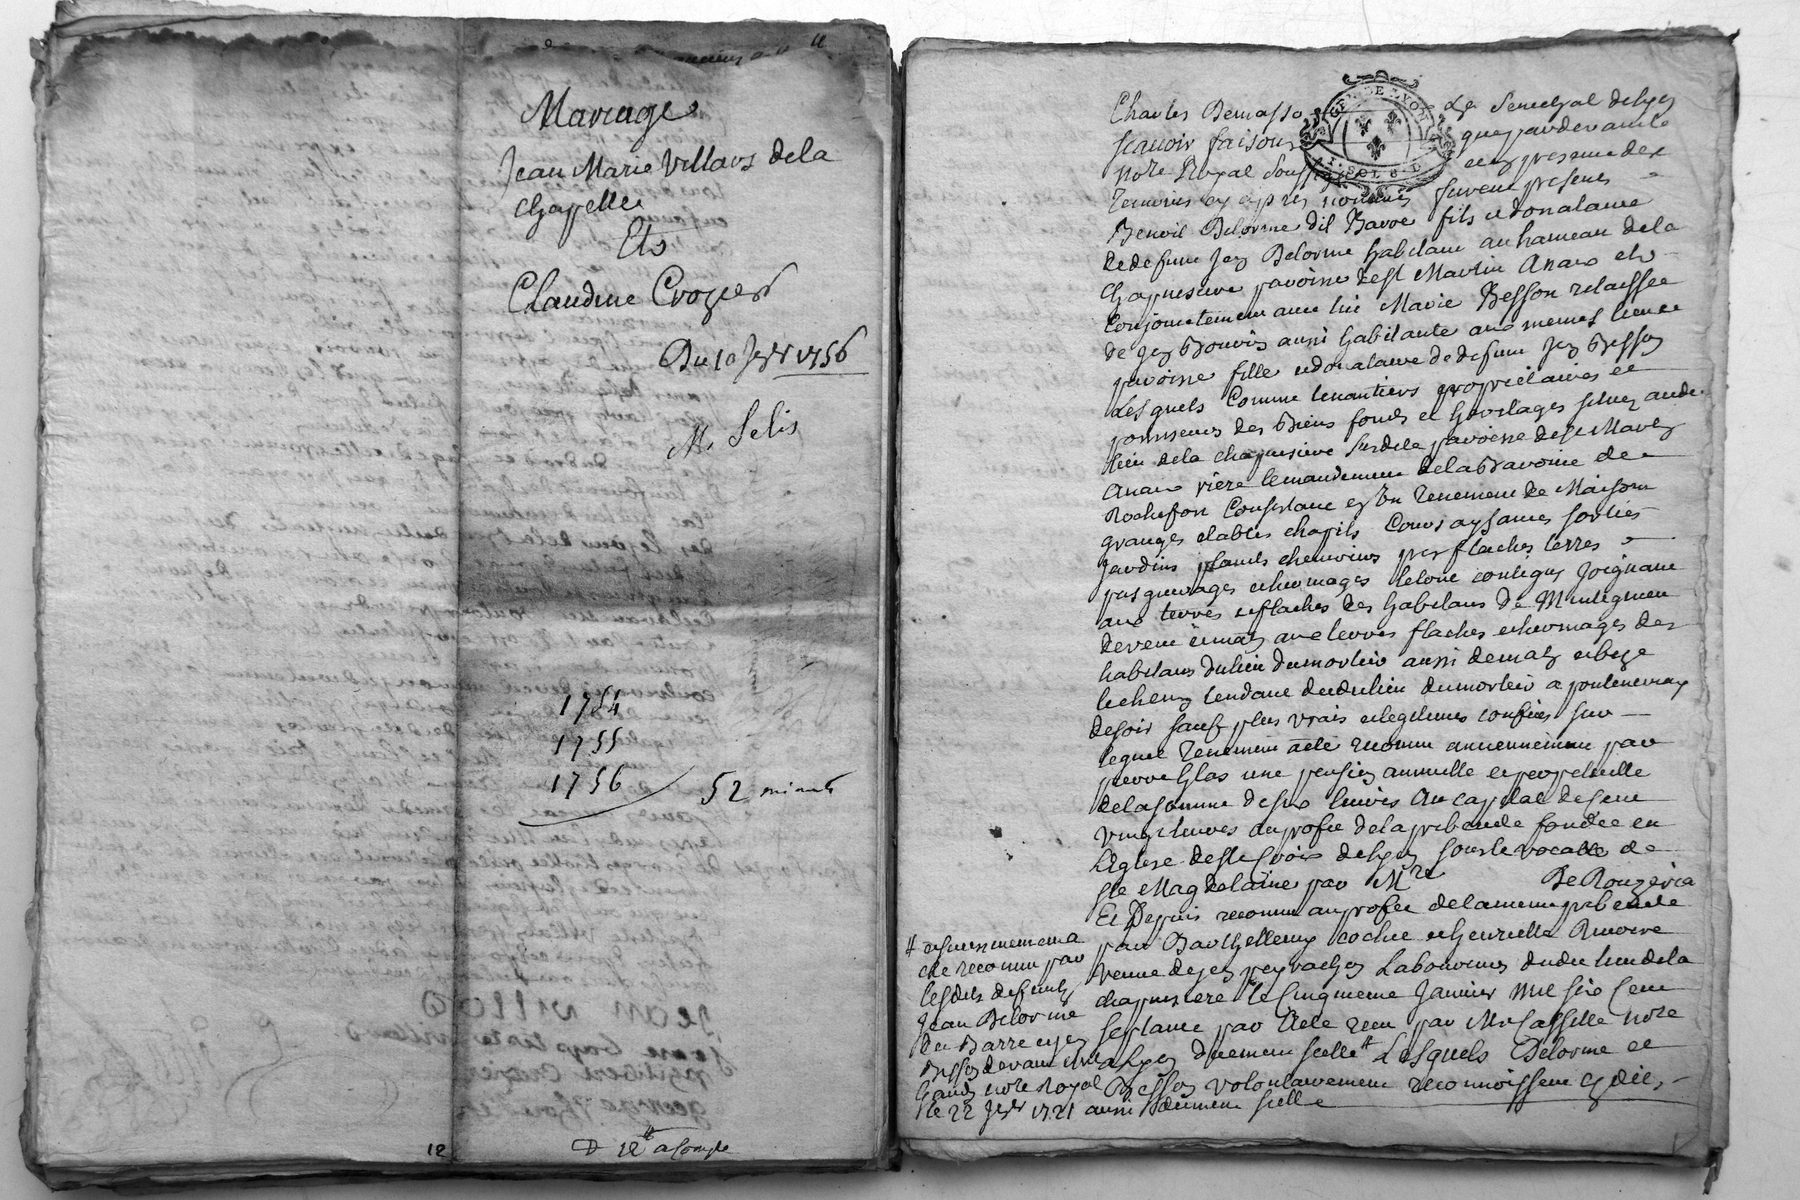 Mariage
Jean Marie Villars dela
Chapelle
Et
Claudine Crozier
Du 10 Jer 1756
M. Selis
1754
1755
1756 52 minutes
12
12 a Compte
Charles Demasso Senechal de Lyon
scavoir faisons que pardevant le
note Royal Souss en presence des
temoins cy apres nommés furent presens
Benoit Delorme dit Barre fils et donataire
de defunt Jean Delorme habitant au hameau dela
Chapuisiere paroisse de St Martin Anaux et
Conjointement avec lui Marie Besson relaissée
de Jean Bouvier aussi habitante aux memes lieu et
paroisse fille et donataire de defunt Jean Besson
Lesquels Comme tenantiers proprietaires et
jouisseurs des Biens fonds et heritages situez aude
lieu dela chapuisiere Susdite paroisse de St Martin
Anaux riere le mandement dela Baronie de
Rochefort Consistant en Un tenement de Maison
granges etables chapits Cours aysances sorties
Jardins plants chenevieres prez flaches terres
pasquerages et hermages le tout contigus Joignant
aux terres et flaches des habitans de
devent et matin aux terres flaches et hermages des
habitans du lieu dumortier aussi dematin et bize
le chemin tendant dudit lieu dumortier a
de soir sauf plus vrais et legitimes confins sur
lequel tenement a été reconnu anciennement par
pierre Glas une pension annuelle et perpetuelle
dela somme de six livres Au capital de cent
vingt livres au profit dela prebende fondée en
L'eglise de Ste Croix de Lyon sous le vocable de
Ste Magdelaine par Mre De Rouzeria
Et Depuis reconnu au profit de la meme prebende
par Barthellemy cochet et henriette
veuve de Jean peyrachon Laboureurs dudit lieu dela
chapuisiere le Cinquieme Janvier mil six Cent
septante par Acte recu par Me Casselle note
a Lyon duement scellé # Lesquels Delorme et
Besson volontairement reconnoissent et
# 
eté reconnu par
lesdits defunts
Jean Delorme
dit Barre et Jean
Besson devant
note Royal
le 22 Jer 1721 aussi duement scellé